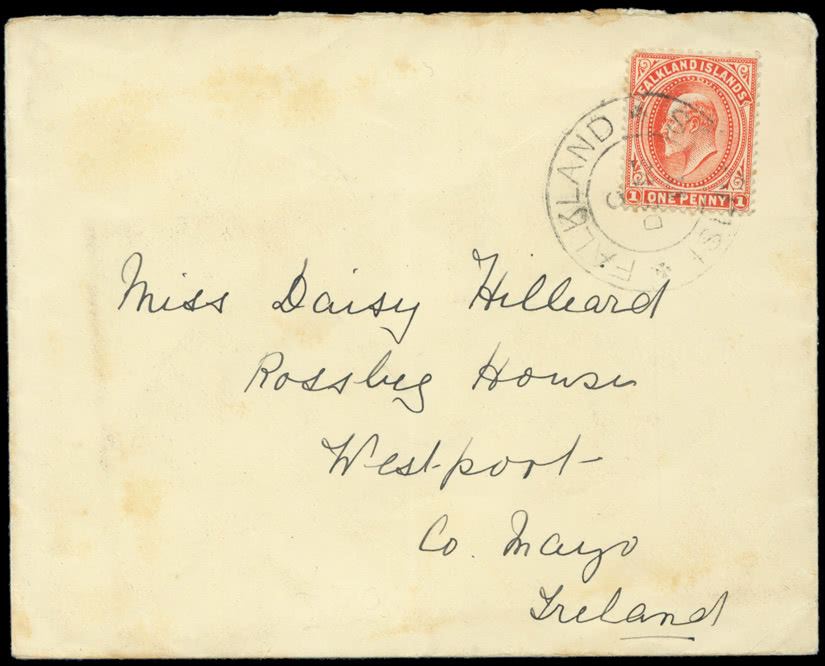 FALKLAND ISLANDS
1 ONE PENNY 1
FALKLAND ISL
Miss Daisy Hilleard
Rossbeg House
Westport
Co. Mayo
Ireland